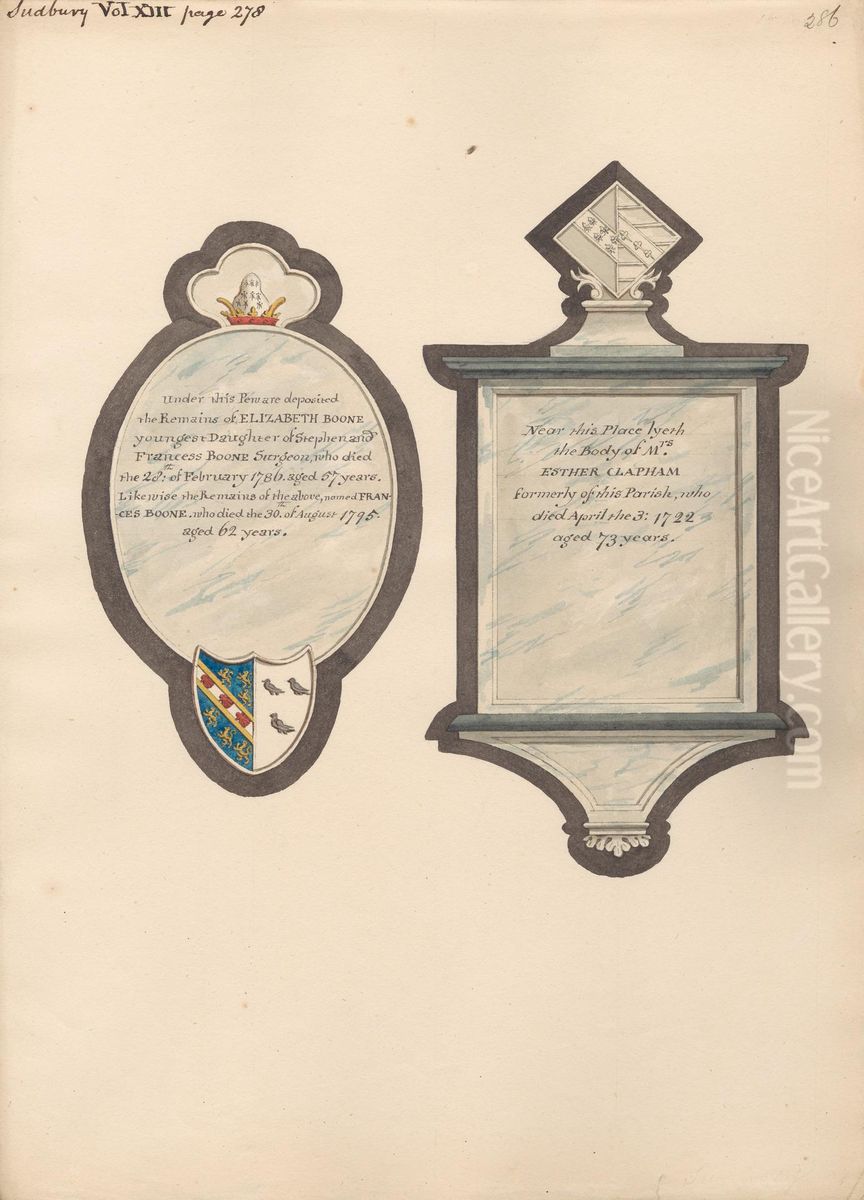 Sudbury Vol XIII page 278
286
Under this Pew are deposited
the Remains of ELIZABETH BOONE
youngest Daughter of Stephen and
FRANCESS BOONE Surgeon, who died
the 28th of February 1786. aged 57 years.
Likewise the Remains of the above, named FRAN-
-CES BOONE. who died the 30th of August 1795.
aged 62 years.
Near this Place lyeth
the Body of Mrs
ESTHER CLAPHAM
formerly of this Parish, who
died April the 3: 1722
aged 73 years.
NiceArtGallery.com